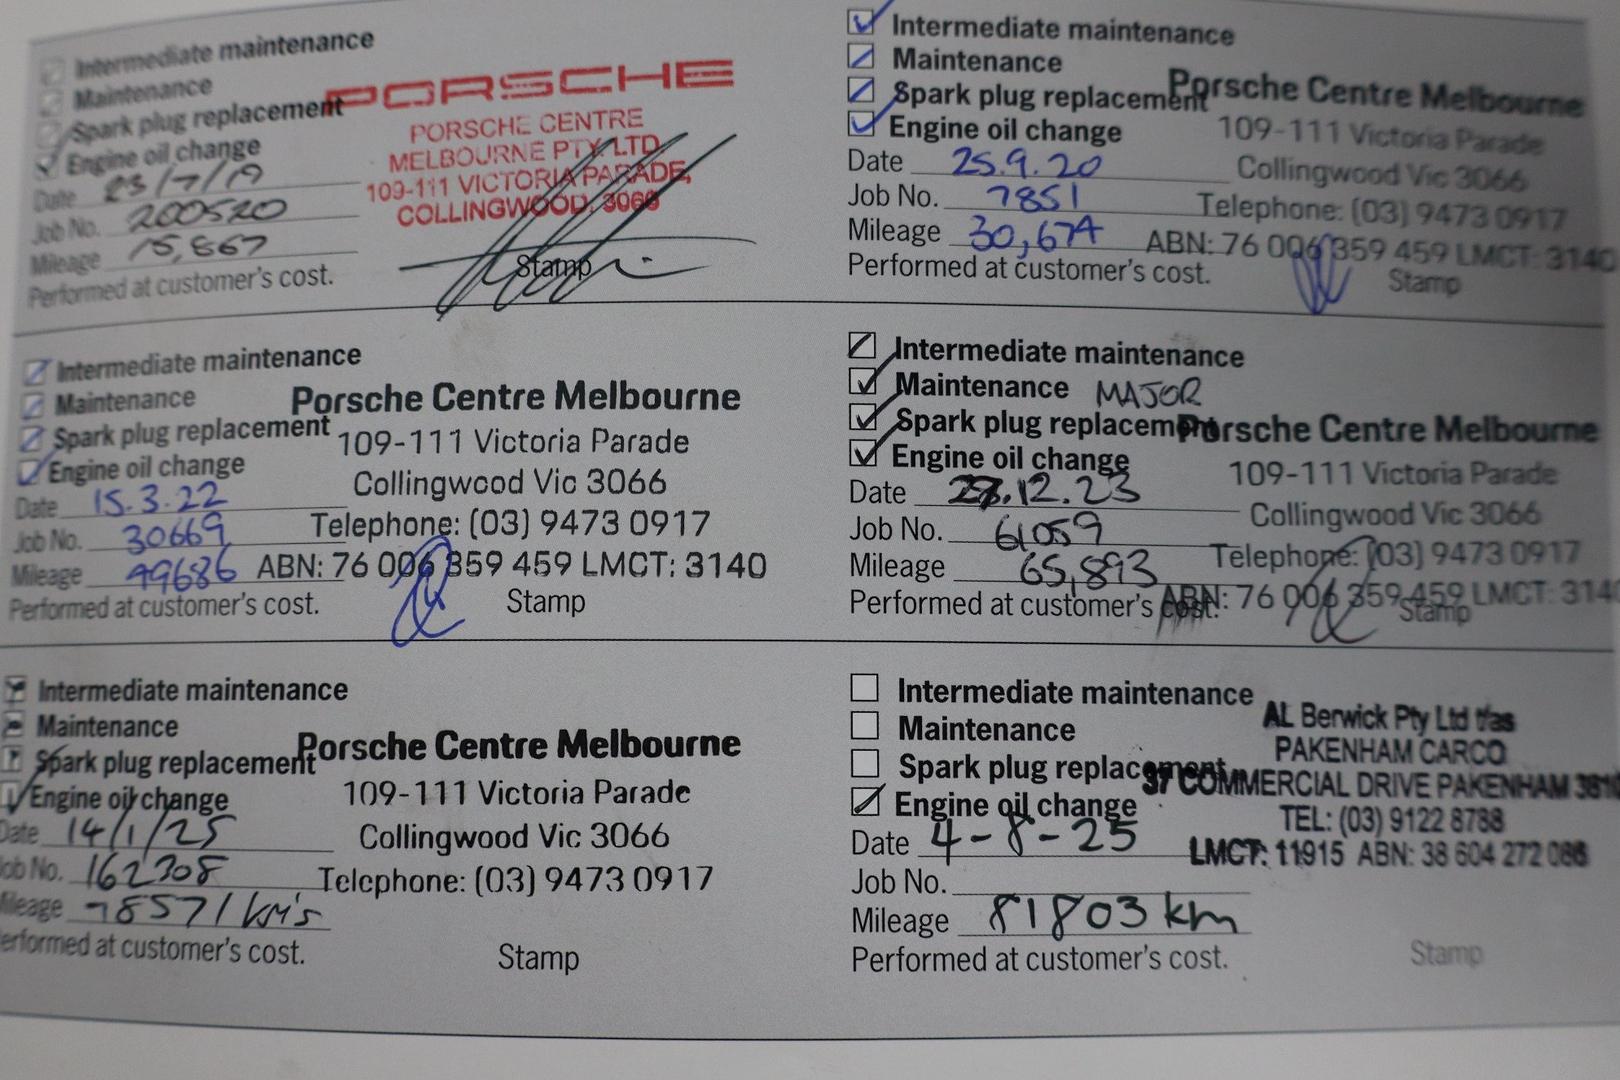 Intermediate maintenance
Maintenance
Spark plug replacement
Engine oil change
Date 23/7/19
Job No. 200520
Mileage 15,867
Performed at customer's cost.
PORSCHE
PORSCHE CENTRE
MELBOURNE PTY. LTD.
109-111 VICTORIA PARADE,
COLLINGWOOD. 3066
Stamp
Intermediate maintenance
Maintenance
Spark plug replacement
Engine oil change
Date 25.9.20
Job No. 7851
Mileage 30,674
Performed at customer's cost.
Porsche Centre Melbourne
109-111 Victoria Parade
Collingwood Vic 3066
Telephone: (03) 9473 0917
ABN: 76 006 359 459 LMCT: 3140
Stamp
Intermediate maintenance
Maintenance
Spark plug replacement
Engine oil change
Date 15.3.22
Job No. 30669
Mileage 49686
Performed at customer's cost.
Porsche Centre Melbourne
109-111 Victoria Parade
Collingwood Vic 3066
Telephone: (03) 9473 0917
ABN: 76 006 359 459 LMCT: 3140
Stamp
Intermediate maintenance
Maintenance MAJOR
Spark plug replacement
Engine oil change
Date 27.12.23
Job No. 61059
Mileage 65,893
Performed at customer's cost.
Porsche Centre Melbourne
109-111 Victoria Parade
Collingwood Vic 3066
Telephone: (03) 9473 0917
ABN: 76 006 359 459 LMCT: 3140
Stamp
Intermediate maintenance
Maintenance
Spark plug replacement
Engine oil change
Date 14/1/25
Job No. 162308
Mileage 78571 KM's
Performed at customer's cost.
Porsche Centre Melbourne
109-111 Victoria Parade
Collingwood Vic 3066
Telephone: (03) 9473 0917
Stamp
Intermediate maintenance
Maintenance
Spark plug replacement
Engine oil change
Date 4-8-25
Job No.
Mileage 81803 km
Performed at customer's cost.
AL Berwick Pty Ltd t/as
PAKENHAM CARCO
37 COMMERCIAL DRIVE PAKENHAM 3810
TEL: (03) 9122 8788
LMCT: 11915 ABN: 38 604 272 086
Stamp